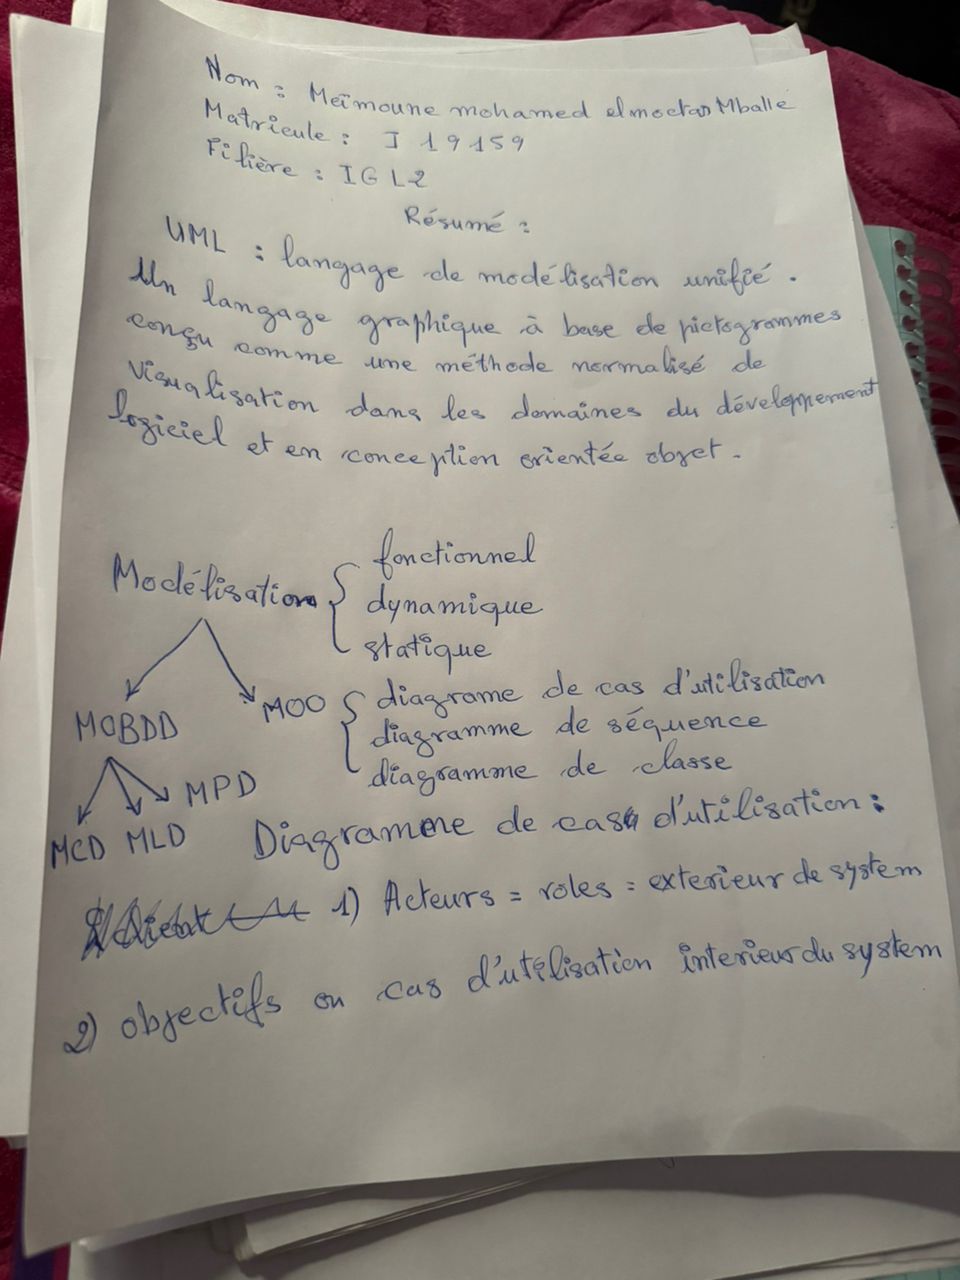 Nom : Meïmoune mohamed elmoctar Mballe
Matricule : I 19159
Filière : IG L2
Résumé :
UML : langage de modélisation unifié.
Un langage graphique à base de pictogrammes
conçu comme une méthode normalisé de
visualisation dans les domaines du développement
logiciel et en conception orientée objet.
Modélisation { fonctionnel
dynamique
statique
MOBDD
MOO { diagrame de cas d'utilisation
diagramme de séquence
diagramme de classe
MPD
MCD MLD
Diagramme de cas d'utilisation :
1) Acteurs = roles = exterieur de system
2) objectifs ou cas d'utilisation interieur du system